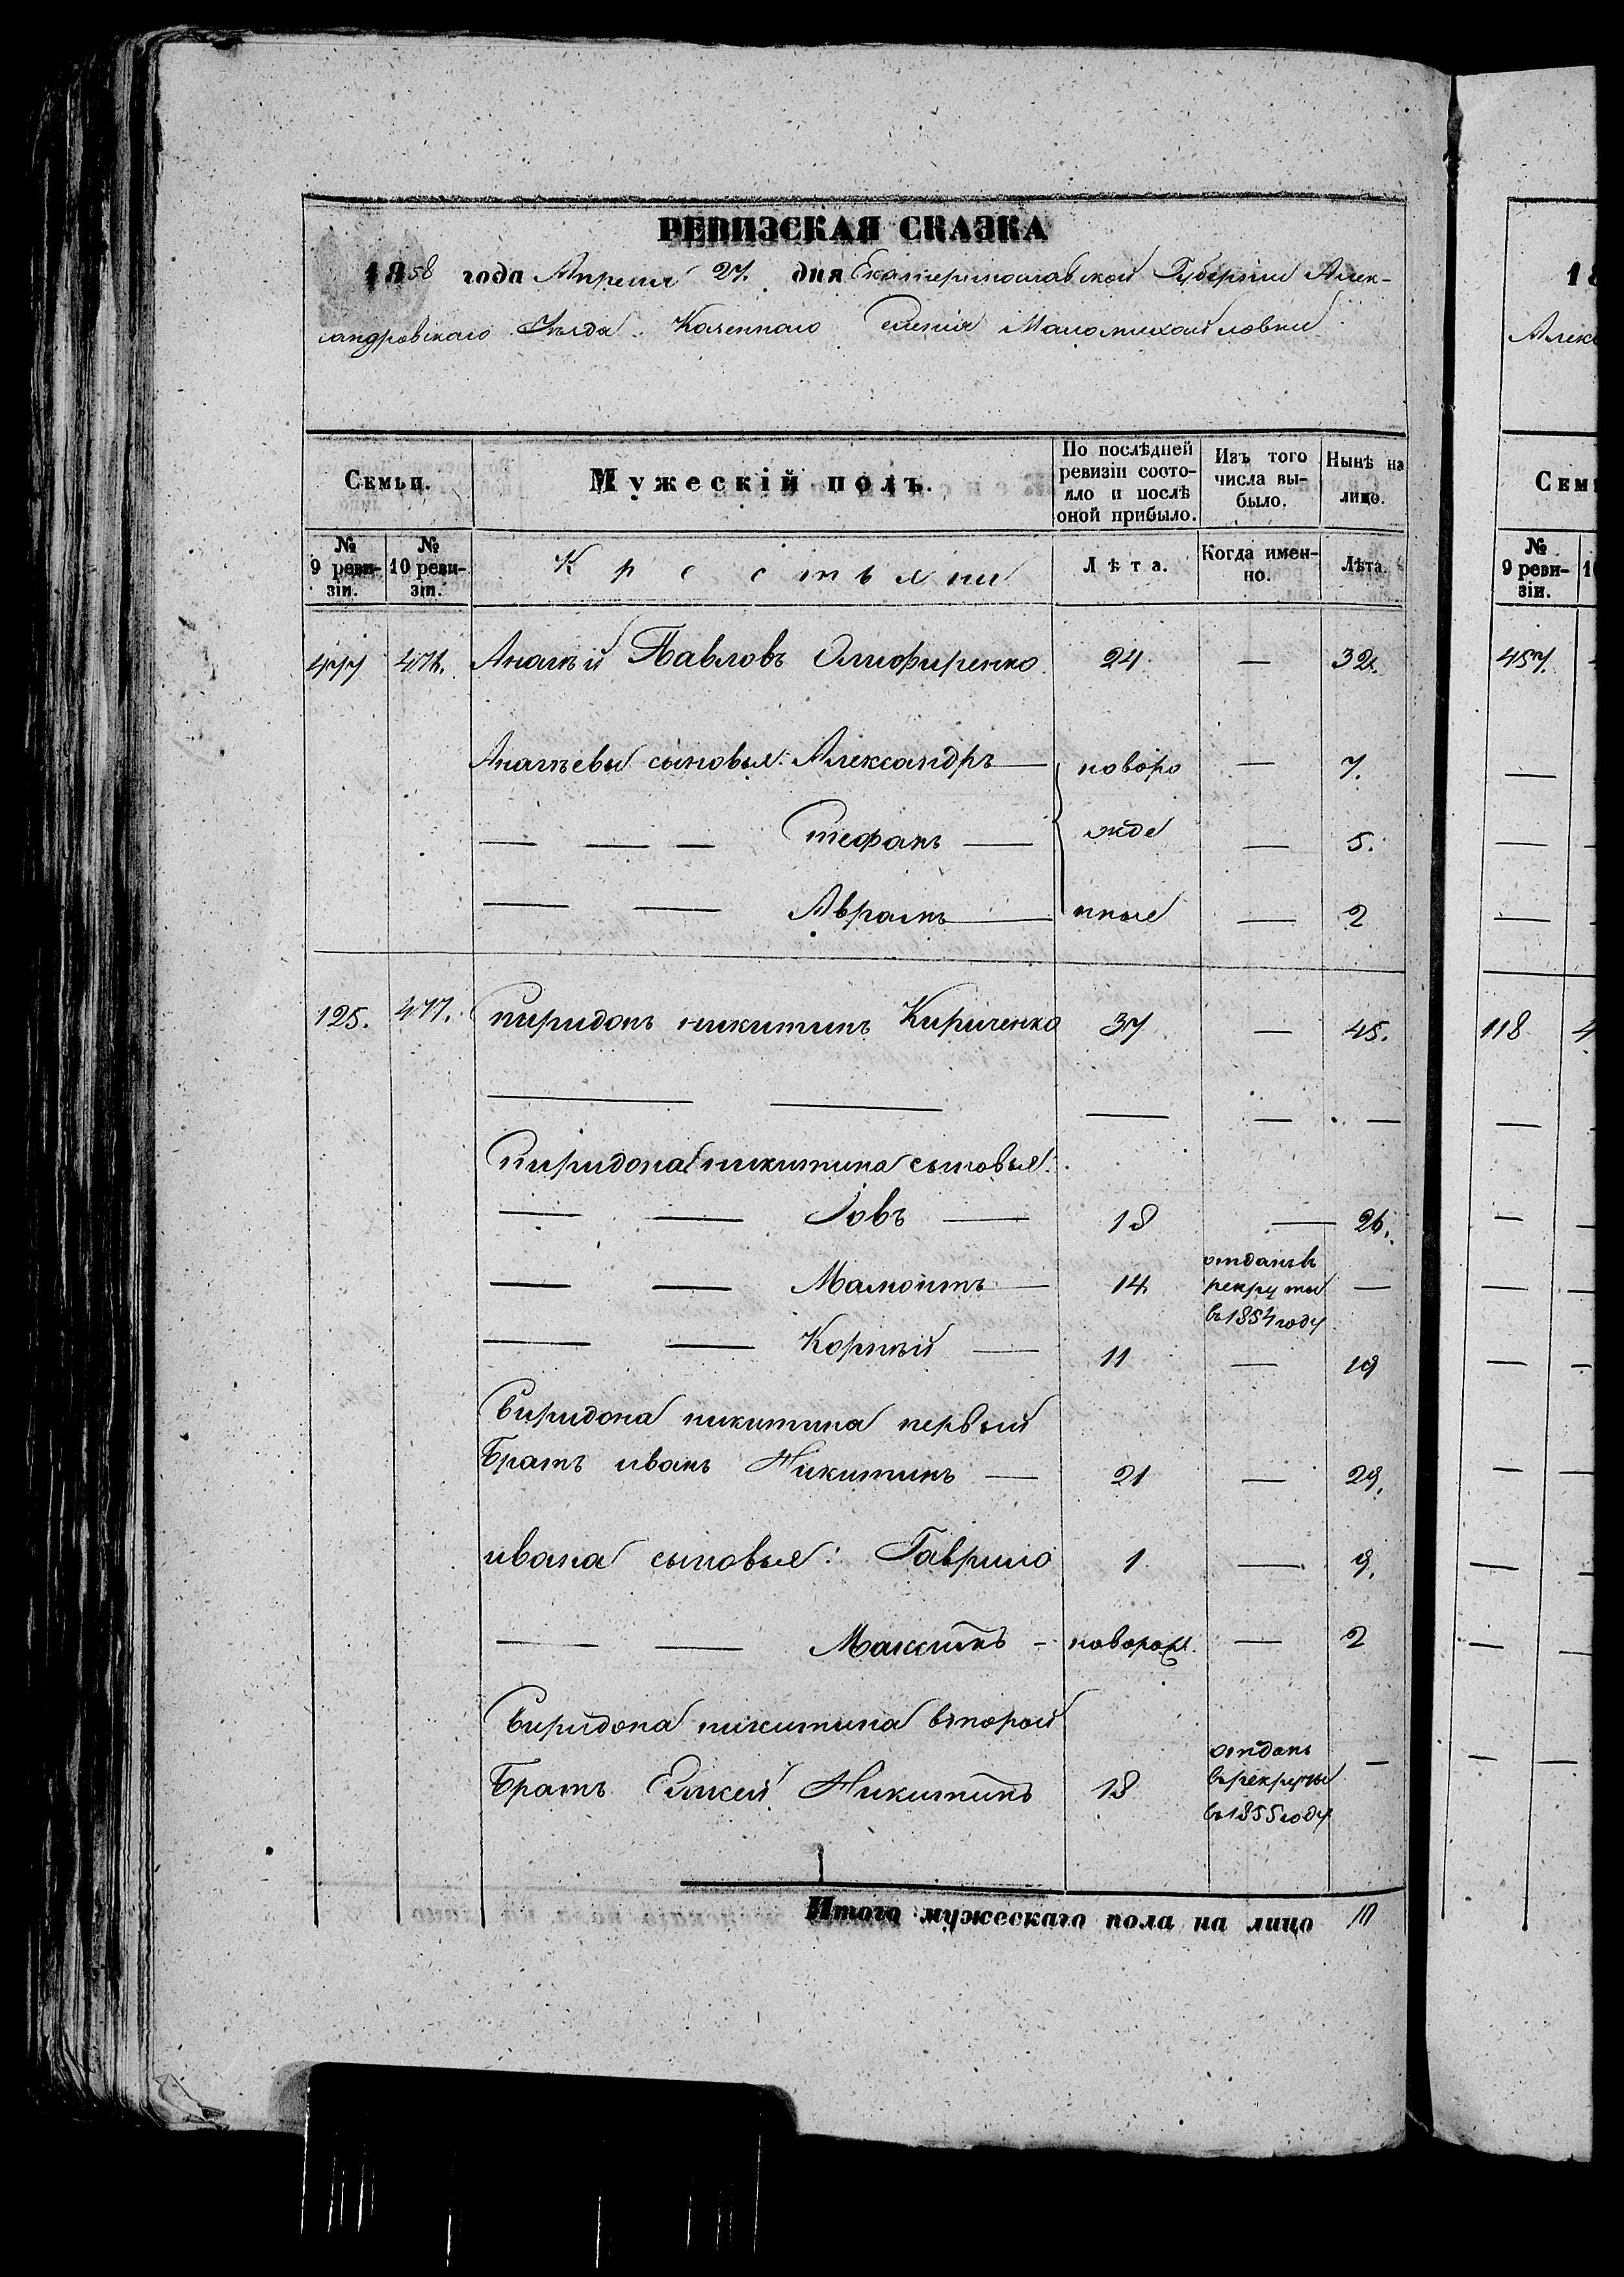 РЕВИЗСКАЯ СКАЗКА
1858 года Апреля 27. дня Екатеринославской Губернии Алек-
сандровскаго Уѣзда. Казеннаго Селенія Маломихайловки
Семьи. Мужескій полъ. По послѣдней ревизіи состо-яло и послѣ оной прибыло. Изъ того числа вы-было. Нынѣ на лицо.
№ 9 реви-зіи. № 10 реви-зіи. Крестьяне Лѣта. Когда имен-но. Лѣта.
477 476. Ананій Павловъ Олифиренко 24 — 32.
Ананьевы сыновья: Александръ — новоро — 7.
— — — Стефанъ — жде — 5.
— — Аврамъ — нные — 2
125. 477. Спиридонъ никитинъ Кириченко 37 — 45.
— — — — —
Спиридона никитина сыновья:
— — Іовъ — 18 — 26.
— — Мамонтъ — 14 отданъ в рекруты въ 1854 году —
— — Корнѣй — 11 — 19
Спиридона никитина первый
Братъ иванъ Никитинъ — 21 — 29.
ивана сыновья: Гаврило 1 — 9.
— — Максимъ - новорож. — 2
Спиридона никитина второй
Братъ Никитинъ 18 отданъ въ рекруты въ 1855 году —
Итого мужескаго пола на лицо 10
18
Алекс
Сем
№ 9 реви-зіи. 1
457.
118 4